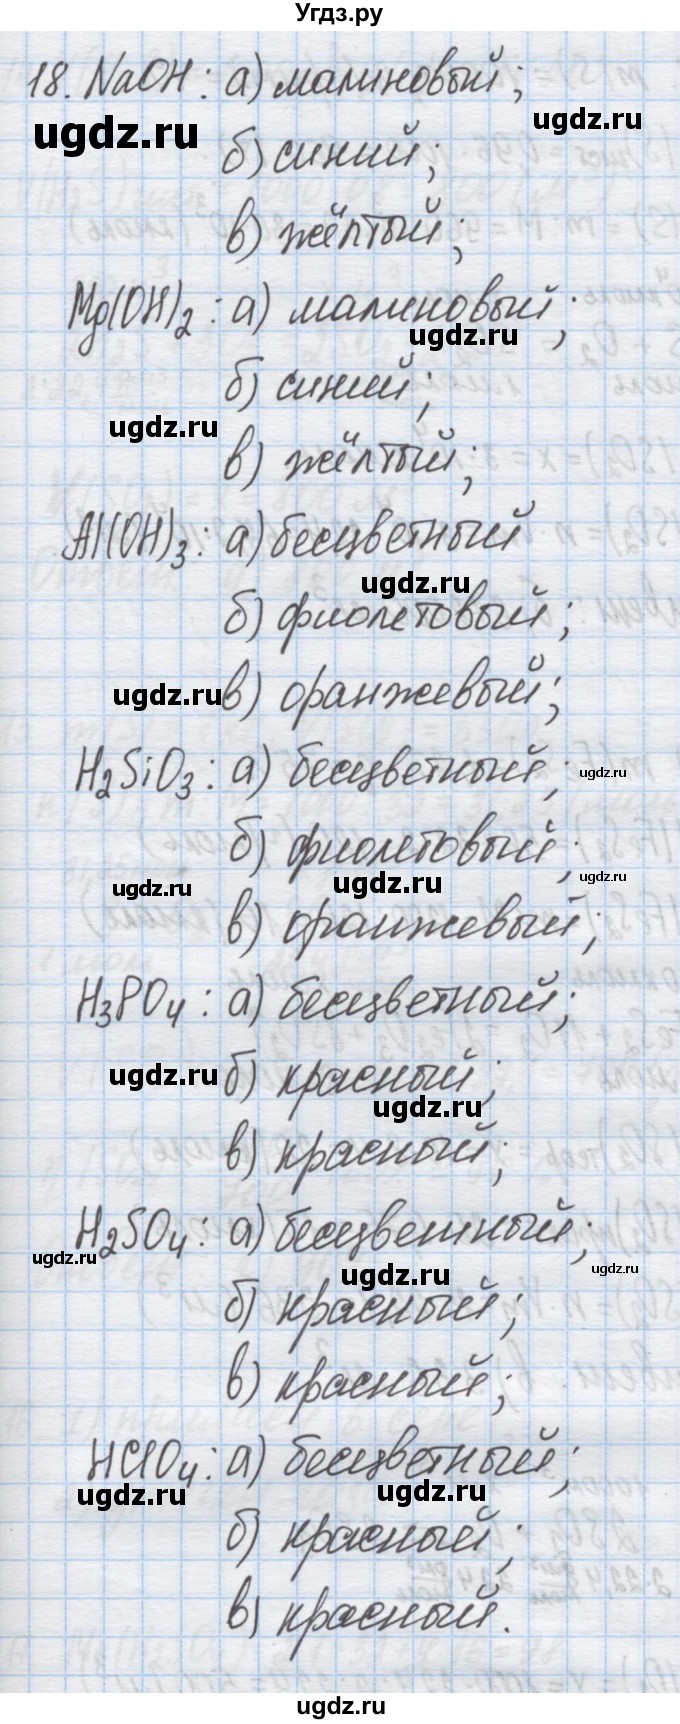 Угдз.ру
18. NaOH: а) малиновый;
ugdz.ru
ugdz.ru
б) синий;
в) жёлтый;
Mg(OH)2: а) малиновый;
ugdz.ru
б) синий;
ugdz.ru
в) жёлтый;
Al(OH)3: а) бесцветный
ugdz.ru
б) фиолетовый;
ugdz.ru
в) оранжевый;
H2SiO3: а) бесцветный;
ugdz.ru
б) фиолетовый;
ugdz.ru
ugdz.ru
ugdz.ru
в) оранжевый;
H3PO4: а) бесцветный;
ugdz.ru
б) красный;
ugdz.ru
в) красный;
H2SO4: а) бесцветный;
ugdz.ru
ugdz.ru
ugdz.ru
б) красный;
в) красный;
HClO4: а) бесцветный;
ugdz.ru
ugdz.ru
б) красный;
в) красный.
ugdz.ru